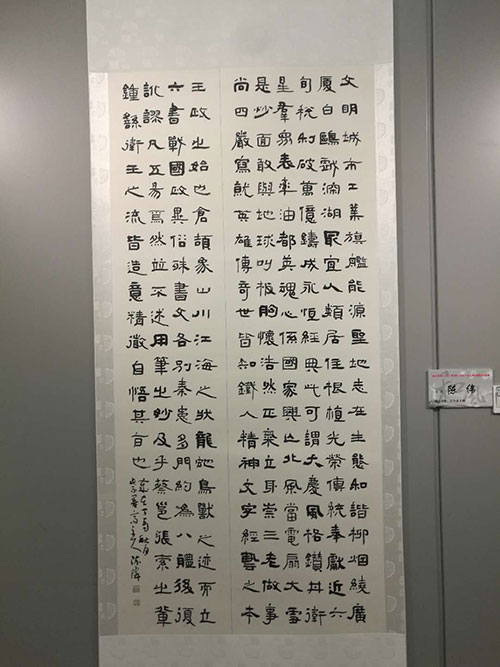 文明城市工業旗艦能源聖地走在生態和諧柳烟繞廣
厦白鷗戲湖最宜人類居住根植光榮傳統奉獻近六
旬稅利破萬億鑄成永恒經典此可謂大慶風格鑽井衛
星羣表率油都英魂心係國家興亡北風當電扇大雪
是炒面敢與地球叫板胸懷浩然正氣立身崇三老做事
尚四嚴寫就英雄傳奇世皆知鐵人精神文字經藝之本
王政之始也倉頡象山川江海之狀龍蛇鳥獸之迹而立
六書戰國政異俗殊書文各別秦患多門約為八體後復
訛謬凡五易焉然並不述用筆之妙及乎蔡邕張索之輩
鍾繇衛王之流皆造意精微自悟其旨也
歲在丁酉秋月
陳偉
陈伟